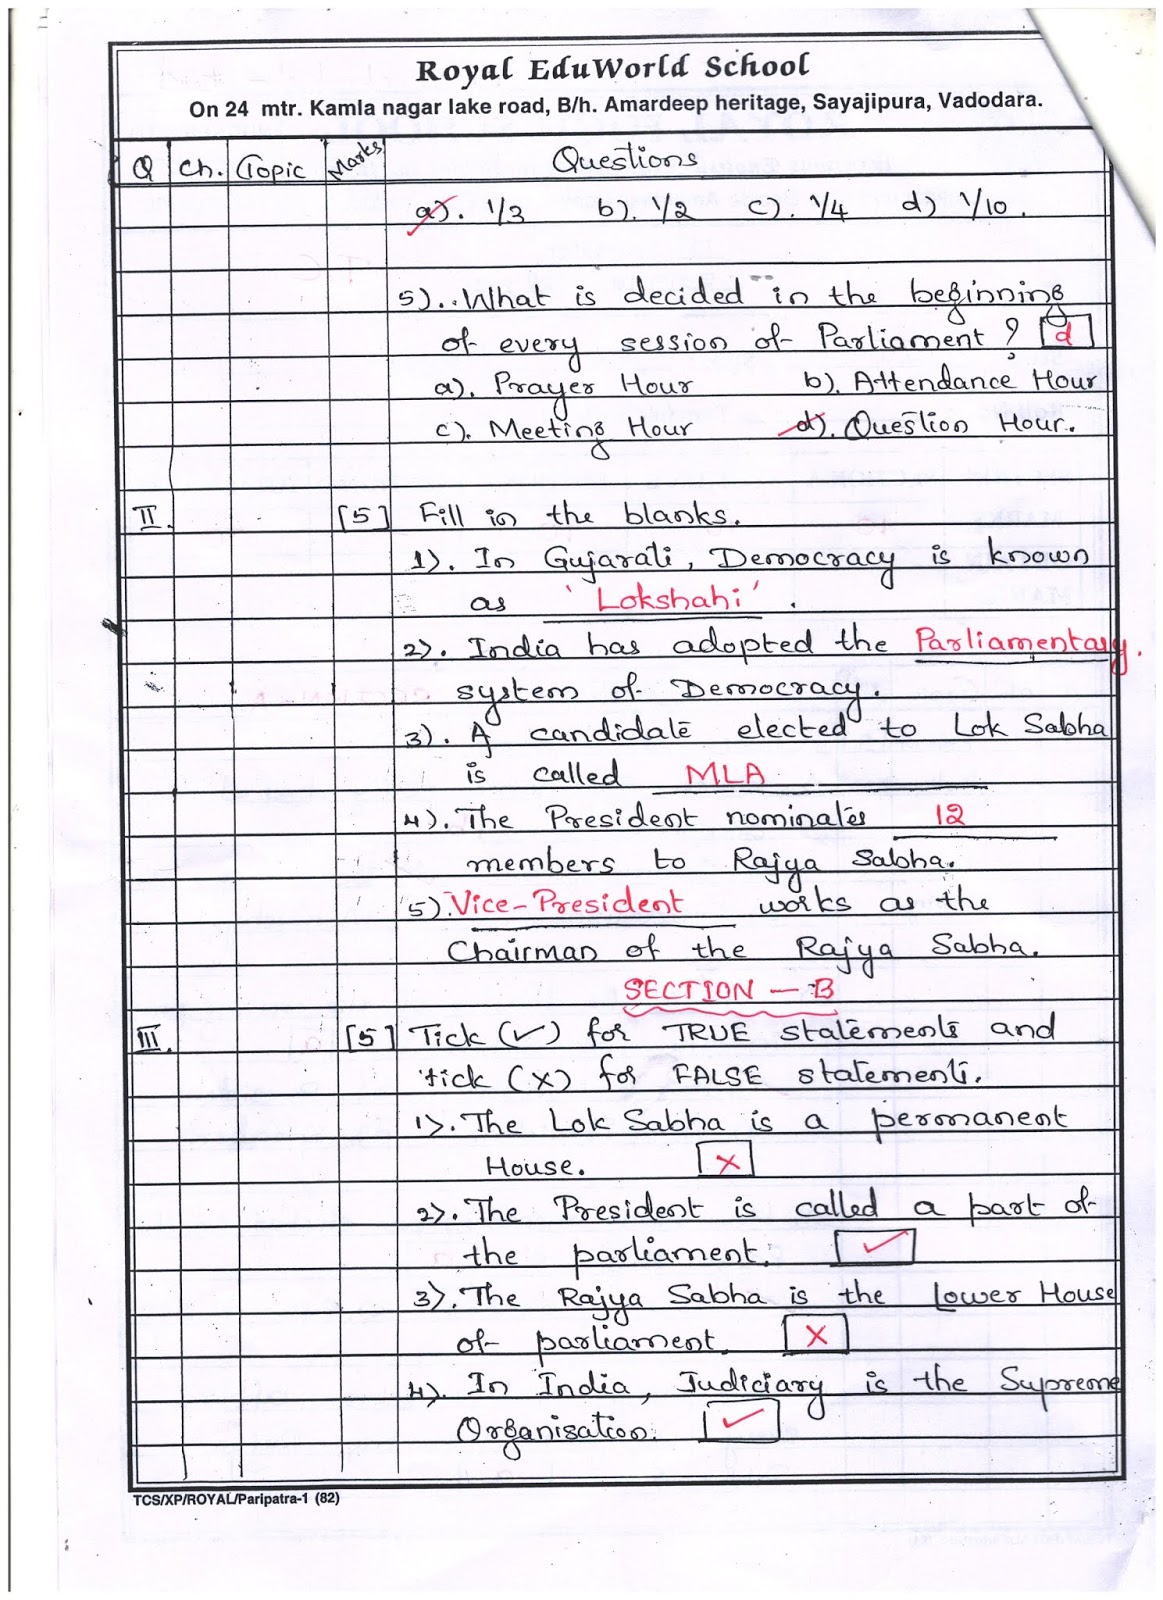 Royal EduWorld School
On 24 mtr. Kamla nagar lake road, B/h. Amardeep heritage, Sayajipura, Vadodara.
Q Ch. Topic Marks Questions
a). 1/3 b). 1/2 c). 1/4 d) 1/10.
5). What is decided in the beginning
of every session of Parliament ? d
a). Prayer Hour b). Attendance Hour
c). Meeting Hour d). Question Hour.
II. [5] Fill in the blanks.
1). In Gujarati, Democracy is known
as 'Lokshahi'.
2). India has adopted the Parliamentary.
system of Democracy.
3). A candidate elected to Lok Sabha
is called MLA
4). The President nominates 12
members to Rajya Sabha.
5). Vice-President works as the
Chairman of the Rajya Sabha.
SECTION - B
III. [5] Tick (✓) for TRUE statements and
tick (X) for FALSE statements.
1). The Lok Sabha is a permanent
House. X
2). The President is called a part of
the parliament. ✓
3). The Rajya Sabha is the Lower House
of parliament. X
4). In India, Judiciary is the Supreme
Organisation. ✓
TCS/XP/ROYAL/Paripatra-1 (82)